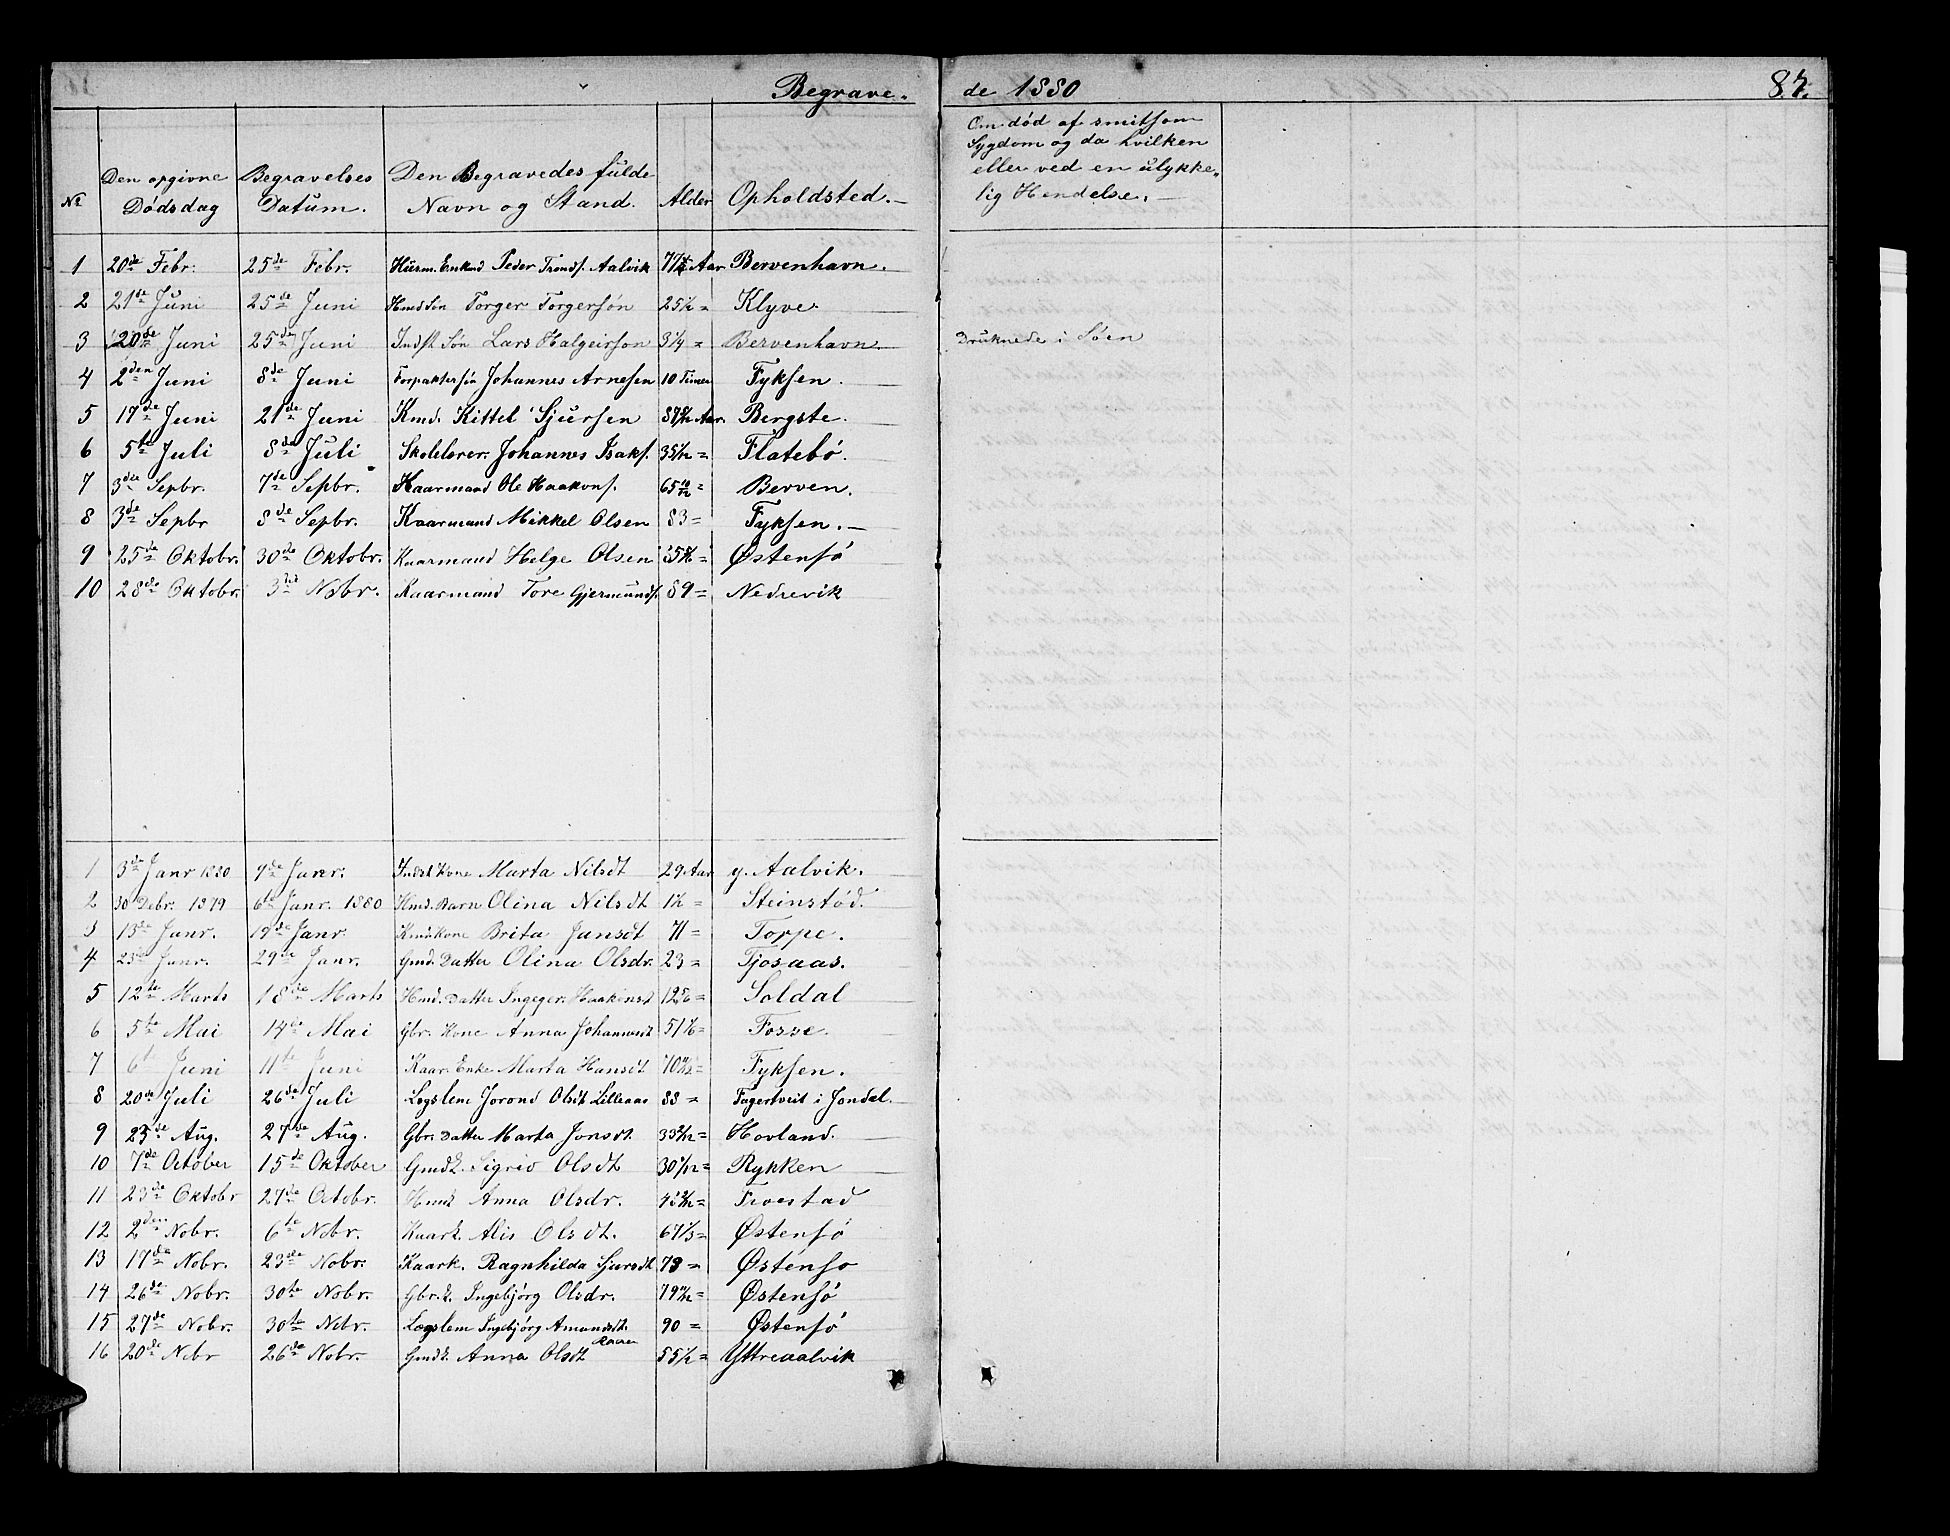 Begrave-
de 1880
87.
No
Den opgivne Dødsdag
Begravelses Datum.
Den Begravedes fulde Navn og Stand.
Alder
Opholdsted.
Om død af smitsom
Sygdom og da hvilken
eller ved en ulykke-
lig Hendelse.
1 20de Febr. 25de Febr. Huusm. Enkmd Peder Tronds. Aalvik 77 Aar Bervenhavn.
2 21de Juni 25de Juni Hmd Søn Torger Torgersøn 25½ = Klyve
3 20de Juni 25de Juni Indst Søn Lars Halgeirson 3¼ = Bervenhavn Druknede i Søen
4 2den Juni 8de Juni Forpaktersøn Johannes Arnesen 10 Timer Fyksen.
5 17de Juni 21de Juni Kmd. Kittel Sjursen Aar. Bergste.
6 5te Juli 8de Juli Skolelærer. Johannes Isaks. = Flatebø.
7 3die Sepbr. 7de Sepbr. Kaarmand Ole Haakons. 65 10/12 = Berven.
8 3de Sepbr 8de Sepbr. Kaarmand Mikkel Olsen 83 = Fyksen.
9 25de Oktobr. 30de Oktobr. Kaarmand Helge Olsen = Østensø
10 28de Oktobr. 3die Nobr. Kaarmand Tore Gjermunds. 89 = Nedrevik
1 3de Janr 1880 9de Janr. Indst Kone Marta Nilsdt 29 Aar y. Aalvik.
2 30 Debr. 1879 6te Janr. 1880 Hmd. Barn Olina Nilsdt 1½ = Steinstød.
3 13de Janr. 19de Janr. Kmdkone Brita Jansdt 71 = Torpe.
4 23de Janr. 29de Janr. Gmd. Datter Olina Olsdr. 23 = Tjosaas.
5 12te Marts 18de Marts Hmd. Datter Ingeger. Haakensd = Soldal
6 5te Mai 14de Mai Gbr. Kone Anna Johannesdt = Fosse.
7 6te Juni 11te Juni Kaar. Enke Marta Hansdt = Fyksen.
8 20de Juli 26de Juli Lægslem Jorond Olsdt Lilleaas 88 = Fagertveit i Jondal.
9 23de Aug. 27de Aug. Gbr. Datter Marta Jonsdt. = Hovland.
10 7de October 15de Oktober Gmdk. Sigrid Olsdt = Rykken
11 23de Oktobr 27de Octobr. Hmdk Anna Olsdr. = Tvestad
12 2den Nobr. 6te Nobr. Kaark. Alis Olsdt. 67⅓ = Østensø
13 17de Nobr. 23de Nobr. Kaark. Ragnhilda Sjursdt 73 = Østensø
14 26de Nobr. 30te Nobr. Gbr.k. Ingebjørg Olsdr. = Østensø
15 27de Nobr. 30te Nobr. Lægslem Ingebjørg Amundsdt. 90 = Østensø
16 20de Nobr 26de Nobr. Gmdk. Anna Olsdt 55½ = Yttreaalvik